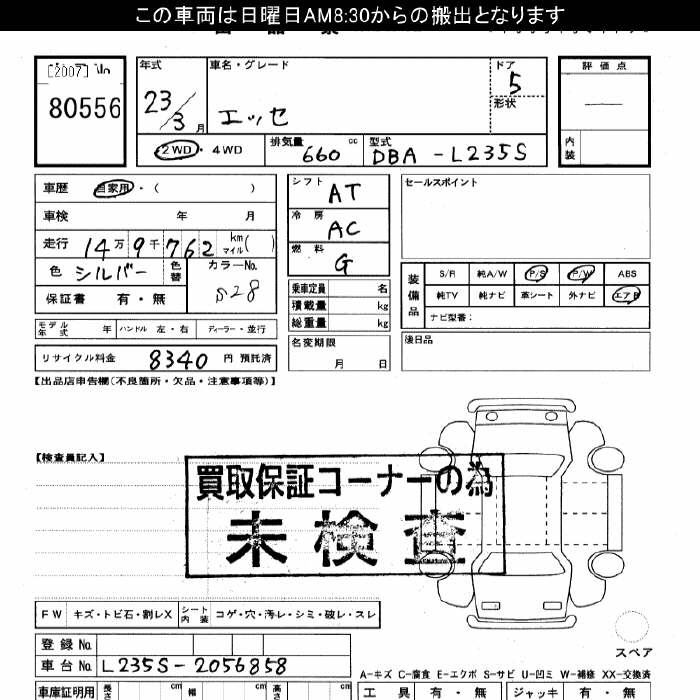 この車両は日曜日AM8:30からの搬出となります
[2007] No
80556
年式
23/3 月
車名・グレード
エッセ
ドア
5
形状
評価点
内装
2WD・4WD
排気量 660 cc
型式 DBA-L235S
車歴 自家用・( )
車検 年 月
走行 14万9千762 km マイル( )
色 シルバー 色替
カラーNo. S28
保証書 有・無
シフト AT
冷房 AC
燃料 G
乗車定員 名
積載量 kg
総重量 kg
セールスポイント
装備品
S/R 純A/W P/S P/W ABS
純TV 純ナビ 革シート 外ナビ エアB
ナビ型番:
モデル年式 年 ハンドル 左・右 ディーラー・並行
名変期限
月 日
後日品
リサイクル料金 8340 円 預託済
【出品店申告欄(不良箇所・欠品・注意事項等)】
【検査員記入】
買取保証コーナーの為
未検査
FW キズ・トビ石・割レX シート内装 コゲ・穴・汚レ・シミ・破レ・スレ
スペア
登録No.
車台No. L235S-2056858
A-キズ C-腐食 E-エクボ S-サビ U-凹ミ W-補修 XX-交換済
車庫証明用 長さ cm 幅 cm 高さ cm
工具 有・無 ジャッキ 有・無